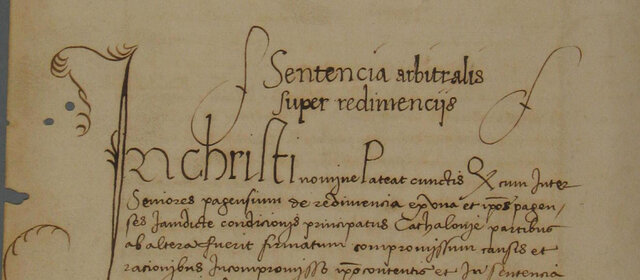 Sentencia arbitralis
super redimenciis
In christi nomine Pateat cunctis Q cum Inter
Seniores pagensium de redimencia ex una et ipos pagen,
ses Jamdicte condicionis principatus Cathalonie partibus
ab altera fuerit firmatum compromissum causis et
racionibus Incompromisso ipo contentis et In sentencia